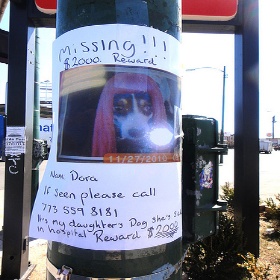 Missing!!!
$2000. Reward
11/27/2010
Nam Dora
If seen please call
773 559 8181
Its my daughter's Dog she's
in hospital Reward $2000